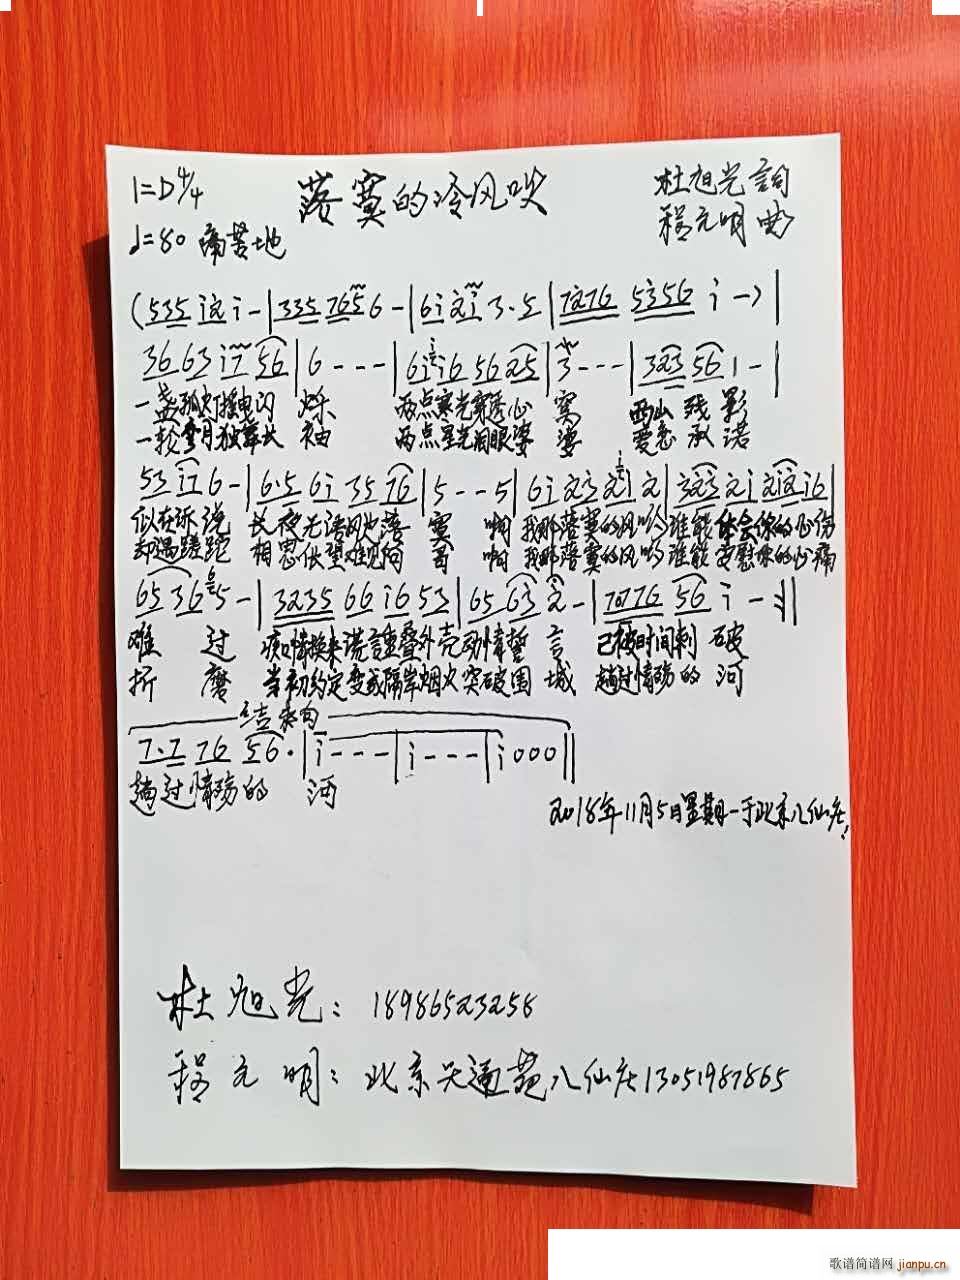 1=D 4/4 落寞的冷风吹 杜旭光 詞
♩=80 痛苦地 程元明 曲
(535 i2i i - | 335 765 6 - | 6i 2i 3·5 | 7276 5356 i - ) |
36 63 i7 56 | 6 - - - | 6i i6 56 25 | 3 - - - | 323 56 1 - |
一盏孤灯摇曳闪 烁 两点寒光穿透心 窝 西山 残 影
一轮 月独舞长 袖 两点星光泪眼婆 娑 爱意 承 诺
53 i7 6 - | 6·5 6i 35 76 | 5 - - 5 | 6i 23 2i 2 | 323 2i 2i2i6 |
似在诉 说 长夜无语风吹落 寞 啊 我那落寞的风吟 谁能 体会你的心伤
却遇蹉跎 相思伫望难见向 啊 我那落寞的风吟 谁能 安慰你的心痛
65 36 5 - | 3235 66 i6 53 | 65 63 2 - | 7276 56 i - :||
难 过 痴情换来谎言重叠外壳 动情誓 言 已被时间刺 破
折 磨 当初约定变成隔岸烟火 突破围 城 趟过情殇的 河
结束句
7·7 76 56· | i - - - | i - - - | i 0 0 0 ||
趟过情殇的 河
2018年11月5日星期一于北京八仙庄
杜旭光：18986523258
程元明：北京天通苑八仙庄13051987865
歌谱简谱网 jianpu.cn